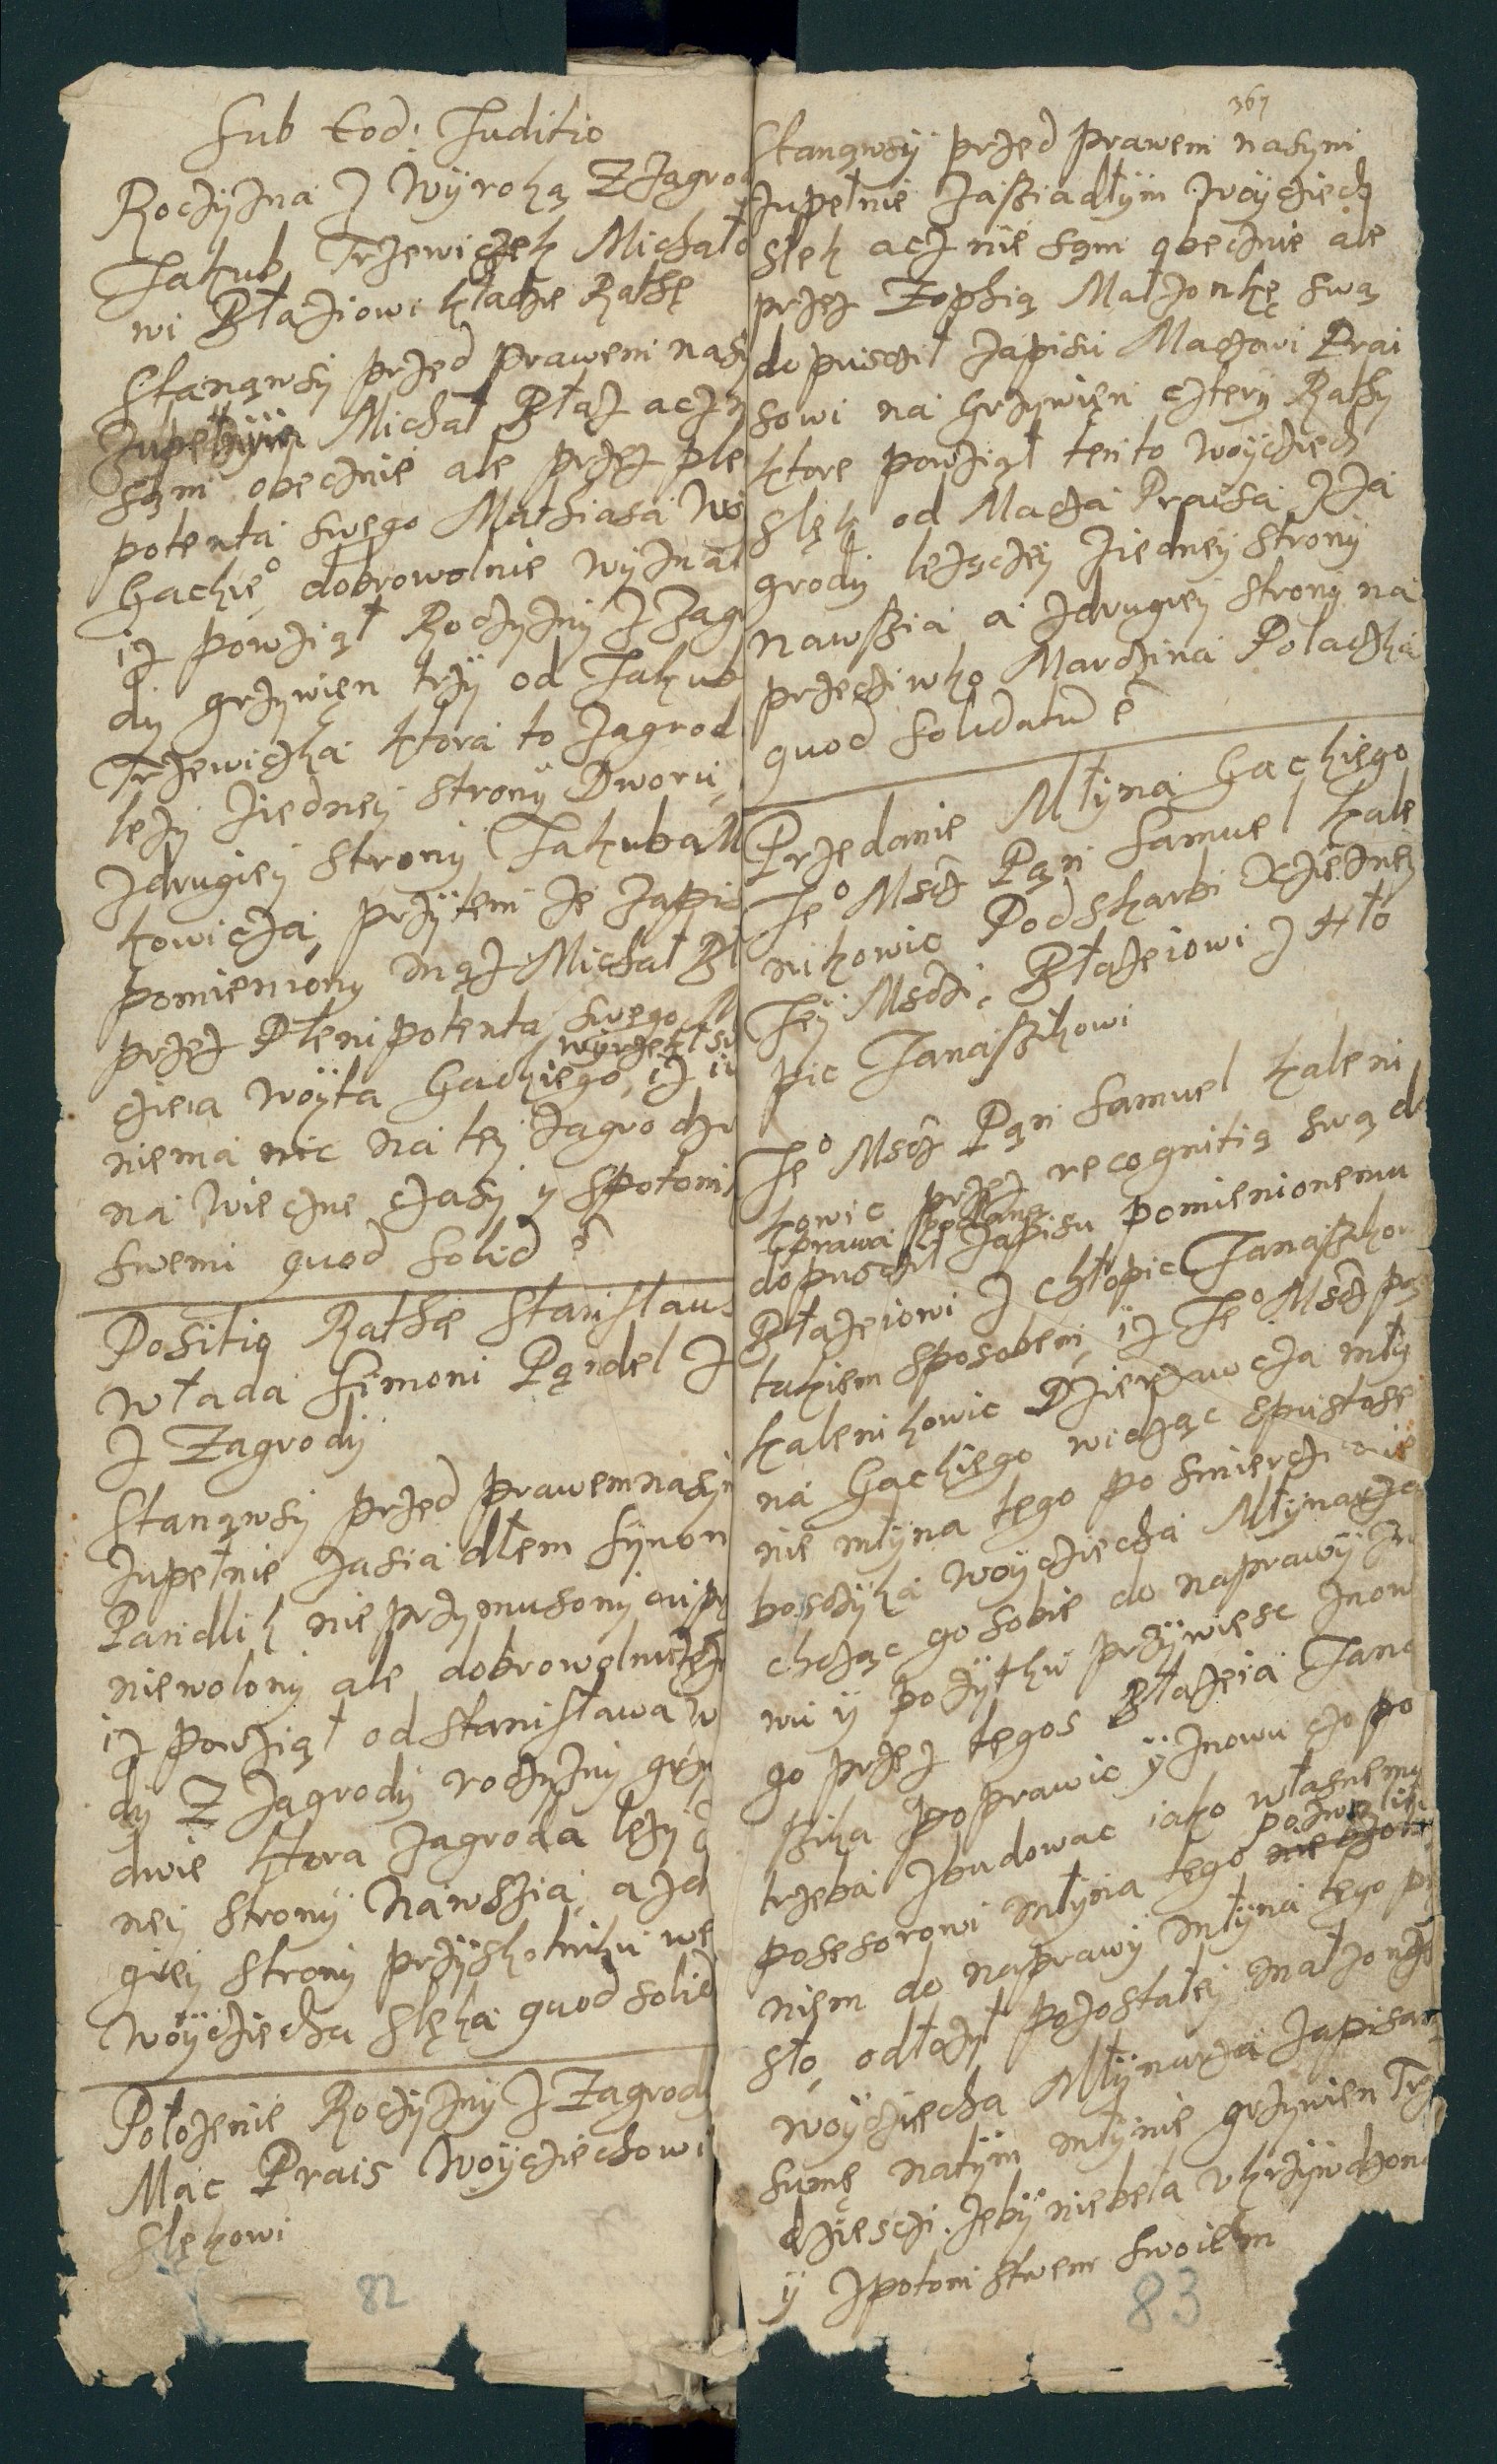 Sub Eod: Juditio
Roczyzna z Wyroką Z Zagrod
Jakub Trzewiczek Michało
wi Błaziowi kładzie Rathę
Stanąwsy przed prawem nasy
Zupełnym Michał Błaz acz n
sąm obecznie ale przez ple
potenta swego Mathiasa Wo
Gackie° dobrowolnie wyznał
iz powziął Roczyzny z Zagr
dy grzywien trzy od Jakub
Trzewiczka ktora to zagrod
lezy ziedney strony Dworu,
zdrugiey strony Jakuba M
kowicza, przytem ze zapis
pomieniony mąz Michał Bł
przez Plenipotenta swego M
wyrzekł sie
zieia woyta Gackiego, iz iu
niema nic na tey zagrodzi
na wieczne czasy y spotoms
swemi quod solid ẽ
Positio Rathæ Stanislaus
Włada Simoni Pąndel Z
Z Zagrody
Stanąwsy przed prawem nasym
zupełnie zasiadłem Symon
Pandlik nie przymusony ani przy
niewolony ale dobrowolnie zez
iz powziął od Stanisława W
dy Z zagrody roczyzny grzy
dwie ktora zagroda lezy z
ney strony Nawszia, a zd
giey strony przyskotniku we
Woyciecha Slęka quod solid
Położenie Roczyzny Z Zagrody
Mac Prais Woyciechowi
Slękowi
82
367
Stanąwsy przed prawem nasym
zupełnie zasziadłym Woyciech
Slęk acz nie sąm obecznie ale
przez Zophią Małzonkę swą
dopuscził zapisu Maczowi Prai
sowi na grzywien cztery Rathy
ktore powziął tento woyciech
Slęk od Macza Praisa Z Za
grody lezączey ziedney strony
nawszia a zdrugiey strony na
przecziwko Marczina Polaczka
quod solidatũ ẽ
Przedanie Młyna Gackiego
Je° Mscz Pąn Samuel Kale
nikowic Podskarbi Xcieżney
Jey Msczi, Błazeiowi z Hło
pic Janaszkowi
Je° Mscz Pąn Samuel Kaleni
kowic przez recognitią swą do
prawa podaną
dopuscził zapisu pomienionemu
Błazeiowi z Chłopic Janaszkow
takiem sposobem, iz Je° Mscz pan
Kalenikowic Dzierzawcza mły
na Gackiego widząc spustose
nie młyna tego po smierczi nie
bosczyka Woyciecha Młynarza
chcząc go sobie do naprawy zn
wu y pozytku przywiesc znow
go przez tegos Błazeia Jana
szka poprawic y znowu czo po
trzeba zbudowac iako własnemu
posesorowi młyna tego
niem do naprawy młyna tego prz
sło, odłozył pozostałey małzonce
Woyciecha Młynarza zapisaną
sumę natym młynie grzywien Trzy
dziesci. zeby niebeła vkrzywdzona
y zpotomstwem swoiem
83